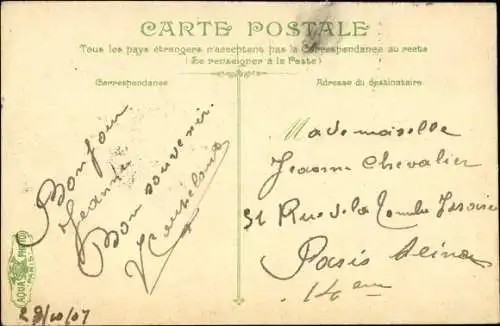 CARTE POSTALE
Tous les pays étrangers n'acceptent pas la Correspondance au recto
(Se renseigner à la Poste)
Correspondance
Adresse du destinataire
Bonjour
Jeanne
Bon souvenir.
Mademoiselle
Jeanne Chevalier
31 Rue de la Tombe Issoire
Paris
14 eme
AQUA PHOTO
PARIS
28/10/07